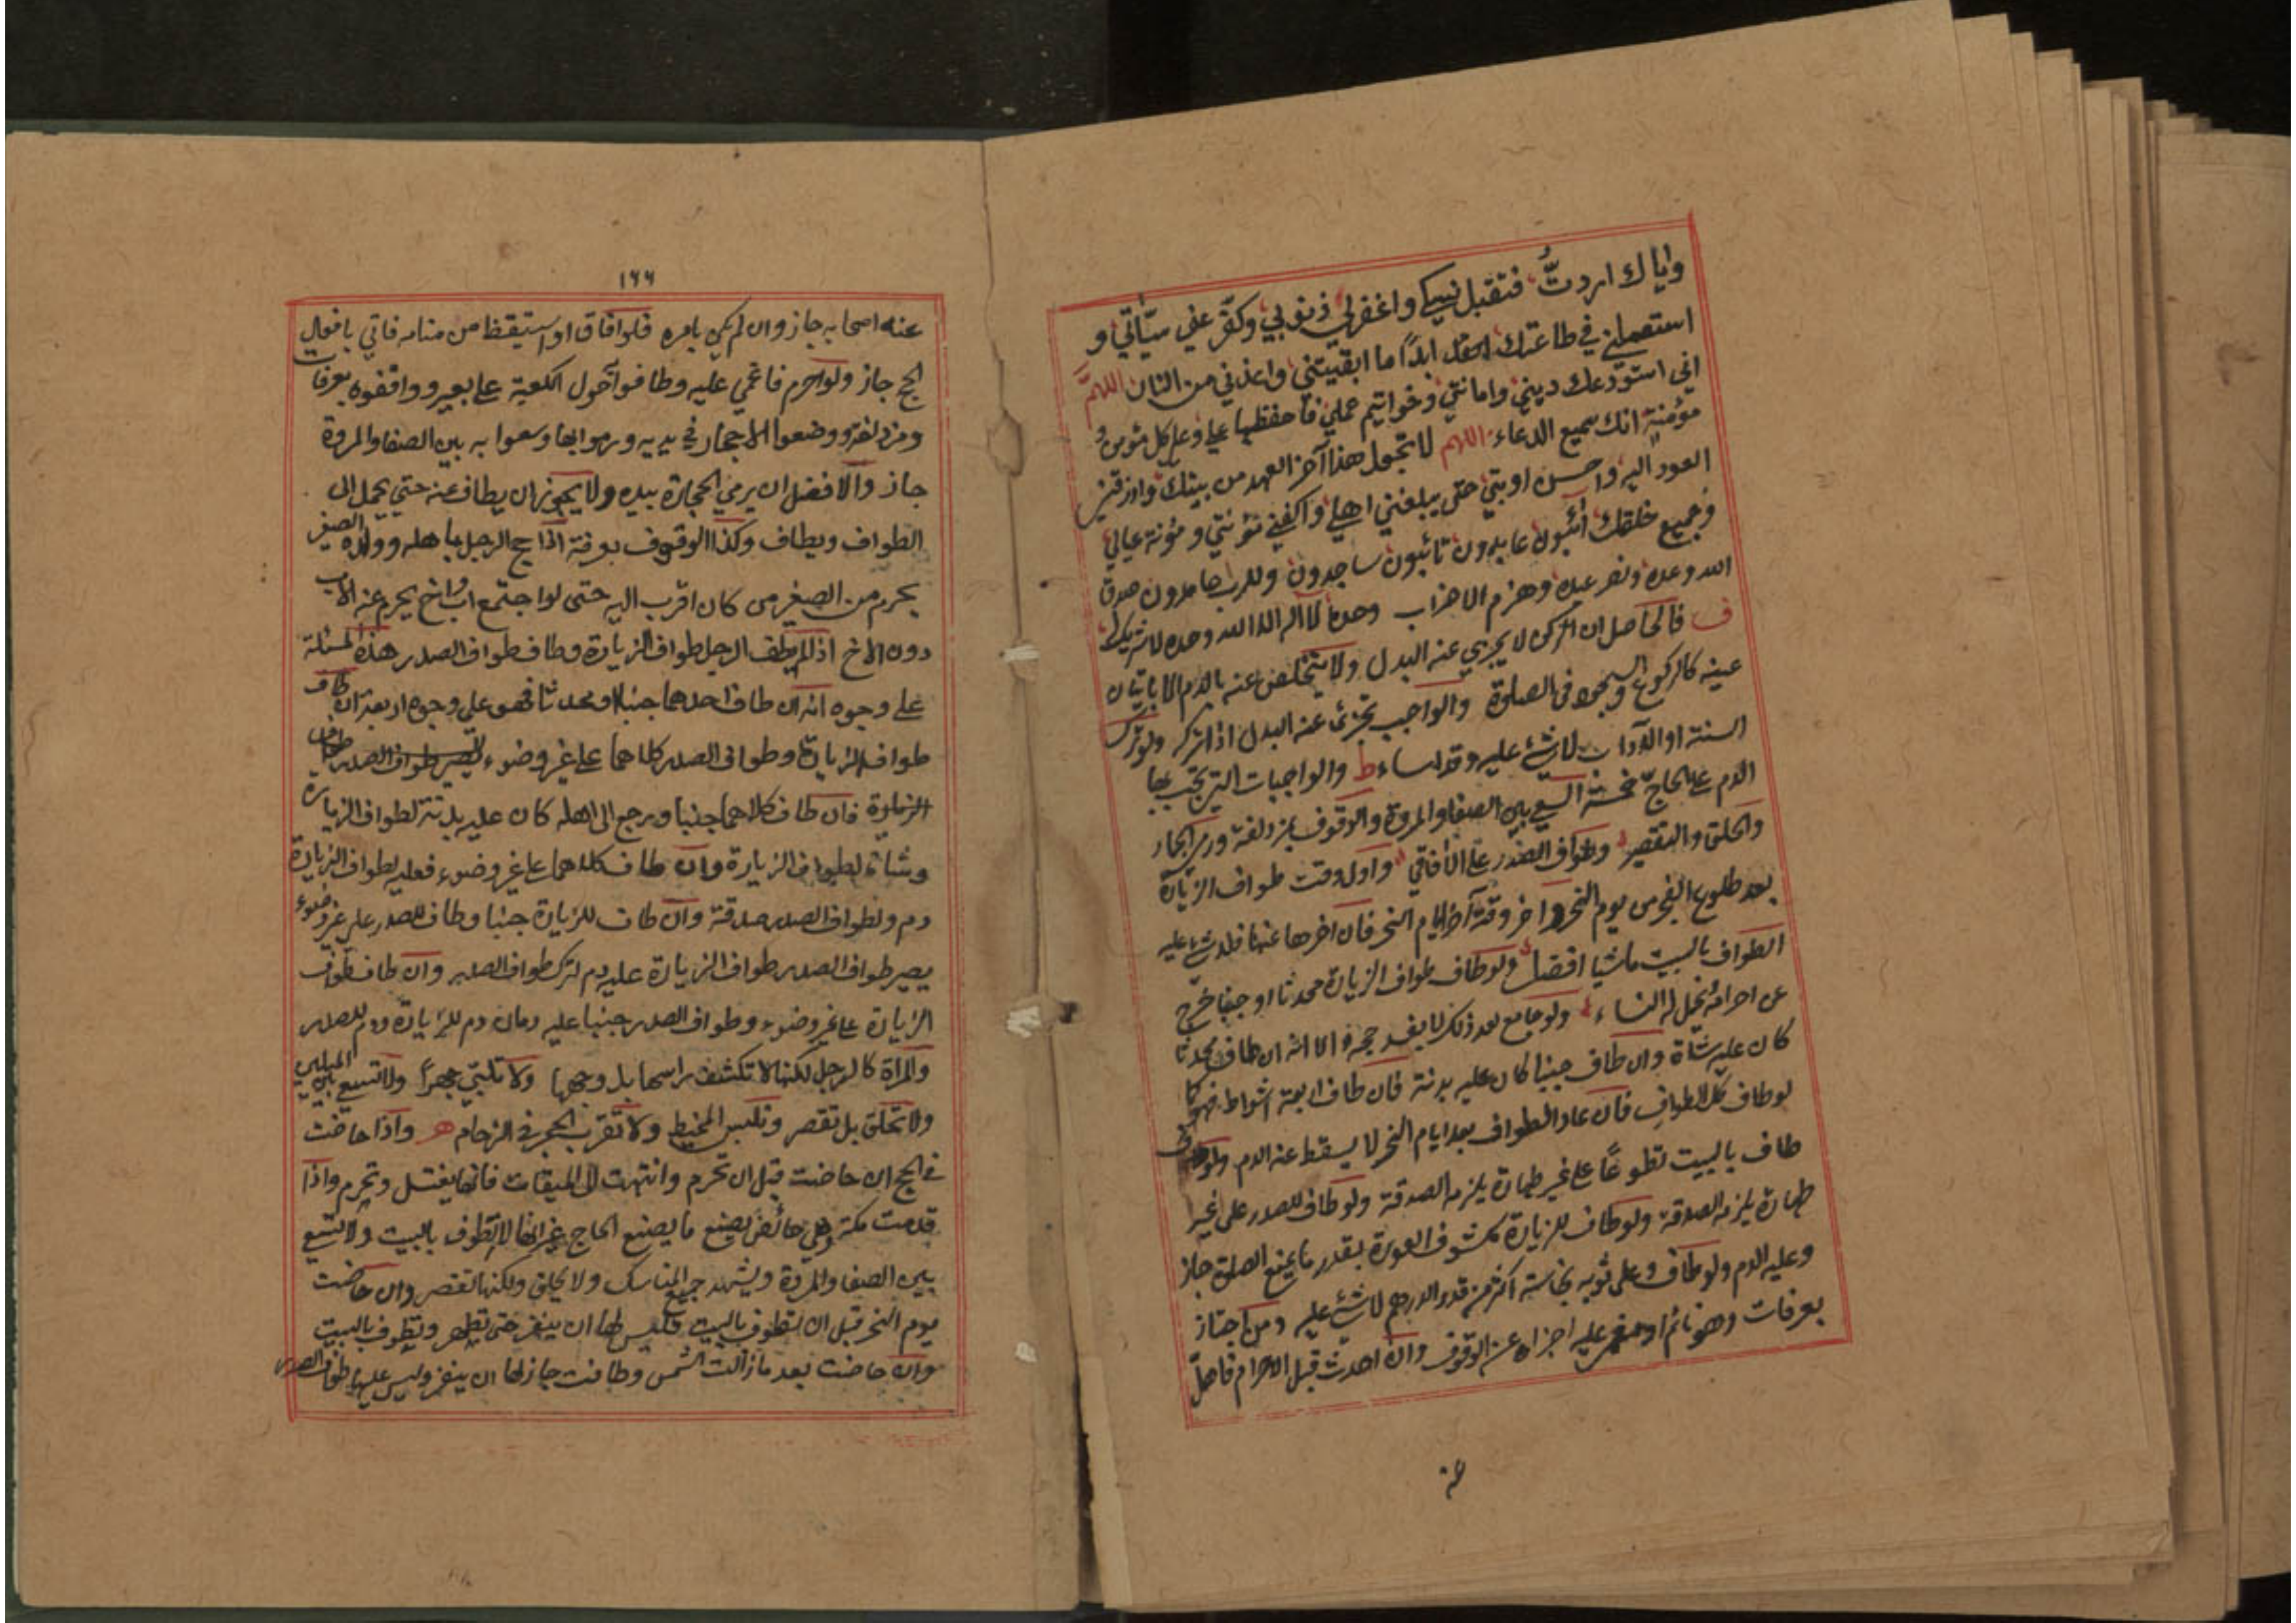 واياك اردتُّ فتقبل نسكي واغفرلي ذنوبي وكفّر عني سيّأتي و
استعملني في طاعتك ابدًا ما ابقيتني واعذني من النار اللهمّ
اني استودعك ديني وامانتي وخواتيم عملي فاحفظها علي وعلى كل مؤمن و
مؤمنة انك سميع الدعاء اللهم لا تجعل هذا آخر العهد من بيتك وارزقني
العود اليه واحسن اوبتي حتى يبلغني اهلي واكفني مؤنتي و مؤنة عيالي
وجميع خلقك آئبون عابدون تائبون ساجدون وللرب حامدون صدق
الله وعده ونصر عبده وهزم الاحزاب وحده لا اله الا الله وحده لا شريك له
ف فالحاصل ان الركن لا يجزي عنه البدل ولا يتخلص عنه بالدم الا باتيان
عينه كالركوع والسجود في الصلوة والواجب يجزئ عنه البدل اذا تركه ولو ترك
السنة او الآداب لا شئ عليه وقد اساء ط والواجبات التي تجب بها
الدم على الحاجّ خمسة السعي بين الصفا والمروة والوقوف بمزدلفة ورمي الجمار
والحلق والتقصير وطواف الصدر على الآفاقي واول وقت طواف الزيارة
بعد طلوع الفجر من يوم النحر واخر وقته آخر ايام النحر فان اخرها عنها فلا شئ عليه
الطواف بالبيت ماشيا افضل ولو طاف طواف الزيارة محدثا او جنبا خرج
عن احرامه فحل له النساء ولو جامع بعد ذلك لا يفسد حجه الا انه ان طاف محدثا
كان عليه شاة وان طاف جنبا كان عليه بدنة فان طاف اربعة اشواط فهو كما
لو طاف كل الطواف فان عاد الطواف بعد ايام النحر لا يسقط عنه الدم ولو
طاف بالبيت تطوعًا على غير طهارة يلزمه الصدقة ولو طاف للصدر على غير
طهارة يلزمه الصدقة ولو طاف للزيارة مكشوف العورة بقدر ما يمنع الصلوة جاز
وعليه الدم ولو طاف وعلى ثوبه نجاسة اكثر من قدر الدرهم لا شئ عليه ومن اجتاز
بعرفات وهو نائم او مغمى عليه اجزاه عن الوقوف وان احدث قبل الاحرام فاهلّ
عنه
١٦٦
عنه اصحابه جاز وان لم يكن بامره فلو افاق او استيقظ من منامه فاتي بافعال
الحج جاز ولو احرم فاغمي عليه وطافوا حول الكعبة على بعير ووافقوه بعرفات
ومزدلفة ووضعوا الاحجار في يديه ورموا بها وسعوا به بين الصفا والمروة
جاز والافضل ان يرمي الحجارة بيده ولا يجوز ان يطاف عنه حتى يحمل الى
الطواف ويطاف وكذا الوقوف بعرفة اذا حج الرجل باهله وولده الصغير
يحرم من الصغير من كان اقرب اليه حتى لو اجتمع اب واخ يحرم عنه الاب
دون الاخ اذا لم يطف الرجل طواف الزيارة وطاف طواف الصدر هذه المسئلة
على وجوه انه ان طاف احدهما جنبا او محدثا فهو على وجوه اربعة ان طاف
طواف الزيارة وطواف الصدر كلاهما على غير وضوء يصير طواف الصدر طواف
الزيارة فان طاف كلاهما جنبا ورجع الى اهله كان عليه بدنة لطواف الزيارة
وشاة لطواف الزيارة وان طاف كلاهما على غير وضوء فعليه لطواف الزيارة
دم ولطواف الصدر صدقة وان طاف للزيارة جنبا وطاف للصدر على غير وضوء
يصير طواف الصدر طواف الزيارة عليه دم لترك طواف الصدر وان طاف طواف
الزيارة على غير وضوء وطواف الصدر جنبا عليه دمان دم للزيارة ودم للصدر
والمراة كالرجل لكنها لا تكشف راسها بل وجهها ولا تلبّي جهرًا ولا تسعى بين الميلين
ولا تحلق بل تقصر وتلبس المخيط ولا تقرب الحجر في الزحام هـ واذا حاضت
في الحج ان حاضت قبل ان تحرم وانتهت الى الميقات فانها يغتسل وتحرم واذا
قدمت مكة وهي حائض يصنع ما يصنع الحاج غير انها لا تطوف بالبيت ولا تسعى
بين الصفا والمروة ويشهد جميع المناسك ولا يحلق ولكنها تقصر وان حاضت
يوم النحر قبل ان تطوف بالبيت فليس لها ان ينفر حتى تطهر وتطوف بالبيت
وان حاضت بعد ما زالت الشمس وطافت جاز لها ان ينفر وليس عليها طواف الصدر